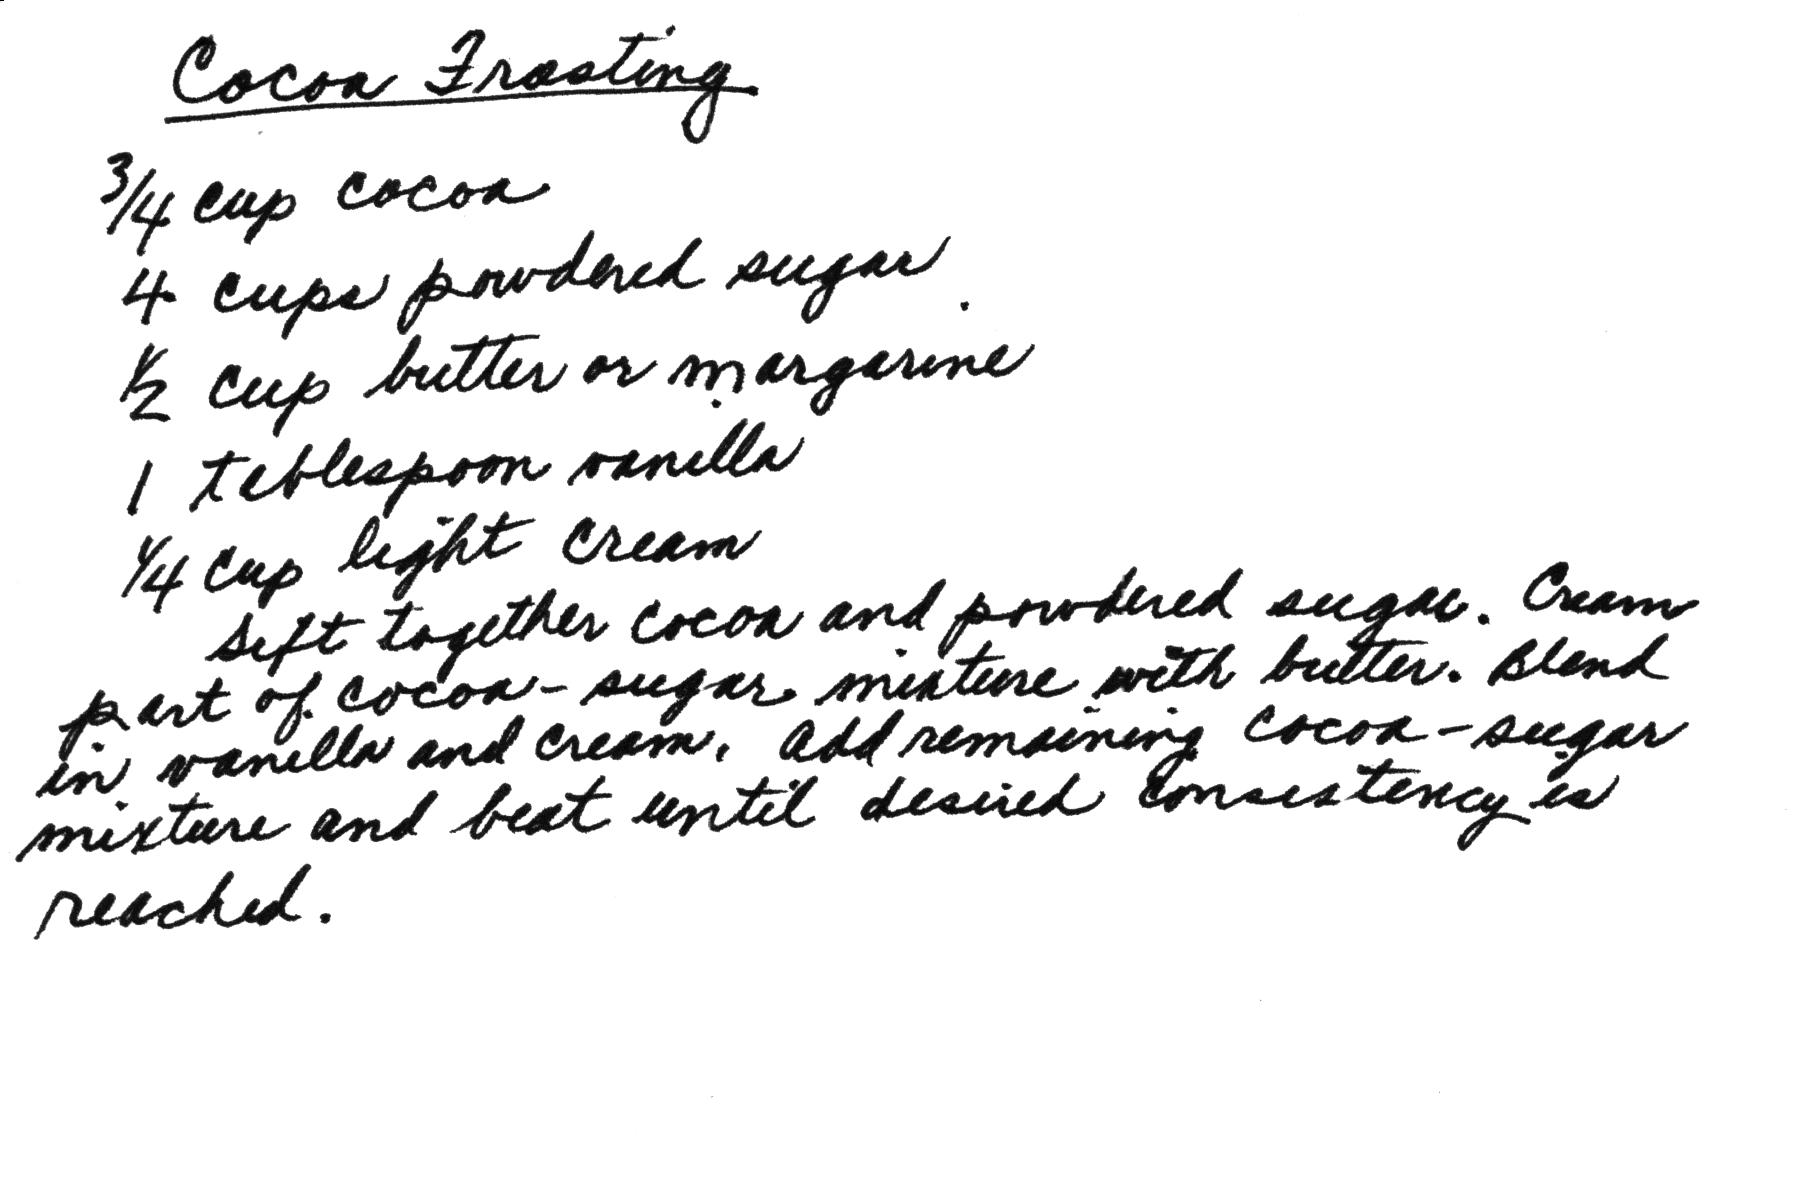 Cocoa Frosting
3/4 cup cocoa
4 cups powdered sugar
1/2 cup butter or margarine
1 tablespoon vanilla
1/4 cup light cream
Sift together cocoa and powdered sugar. Cream
part of cocoa-sugar mixture with butter. Blend
in vanilla and cream. Add remaining cocoa-sugar
mixture and beat until desired consistency is
reached.